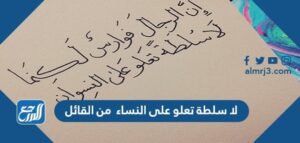 إن الرجال فوارس لكنما
لا سلطة تعلو على النسوان
almrj3.com
لا سلطة تعلو على النساء من القائل
المرجع